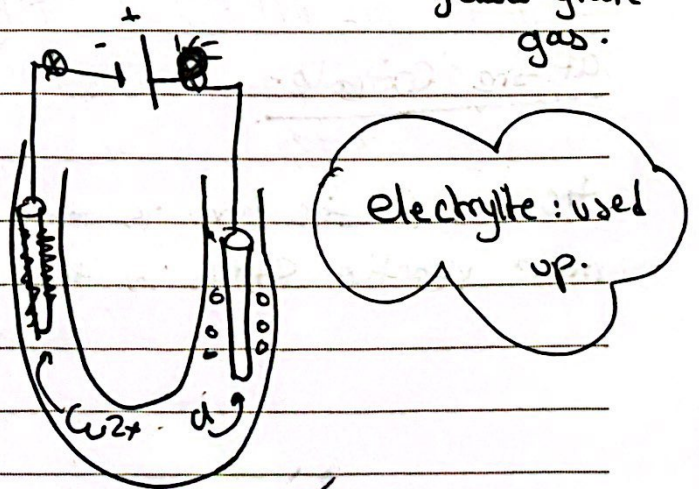 gas.
+
-
electrylte : used
up.
Cu2+
cl